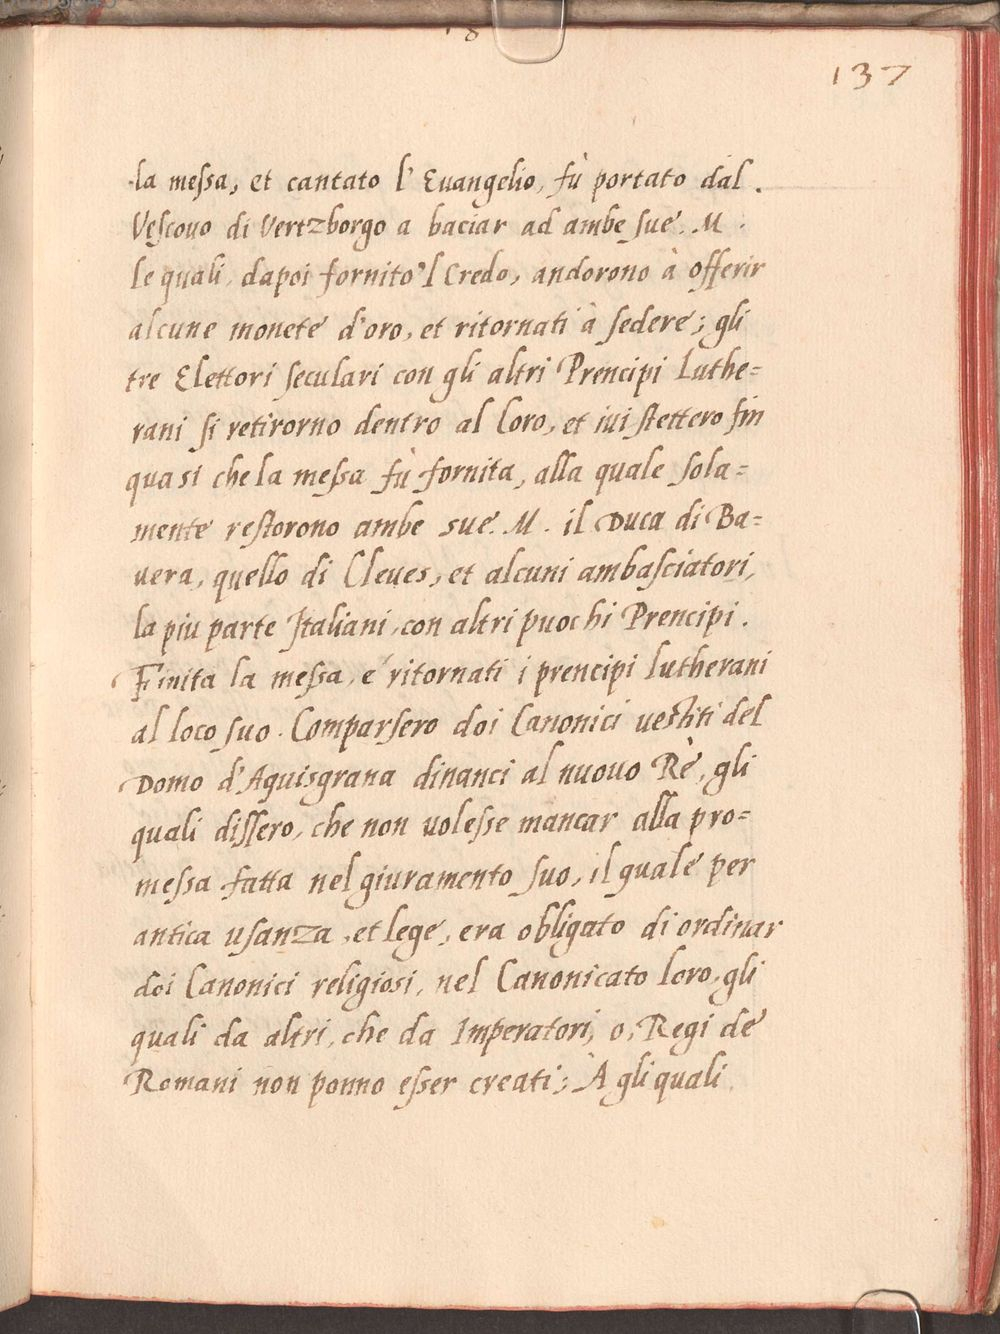 137
la messa, et cantato l'Euangelio, fù portato dal.
Vescouo di Vertzborgo a baciar ad ambe sue. M.
le quali, dapoi fornito'l Credo, andorono à offerir
alcune monete d'oro, et ritornati à sedere; gli
tre Elettori seculari con gli altri Prencipi Luthe=
rani si retirorno dentro al loro, et iui stettero fin
quasi che la messa fù fornita, alla quale sola=
mente restorono ambe sue. M. il Duca di Ba=
uera, quello di Cleues, et alcuni ambasciatori,
la piu parte Italiani, con altri puochi Prencipi.
Finita la messa, é ritornati i prencipi lutherani
al loco suo. Comparsero doi Canonici vestiti del
Domo d'Aquisgrana dinanci al nuouo Rè, gli
quali dissero, che non uolesse mancar alla pro=
messa fatta nel giuramento suo, il quale per
antica usanza, et lege, era obligato di ordinar
doi Canonici religiosi, nel Canonicato loro, gli
quali da altri, che da Imperatori, o, Regi de
Romani non ponno esser creati; À gli quali